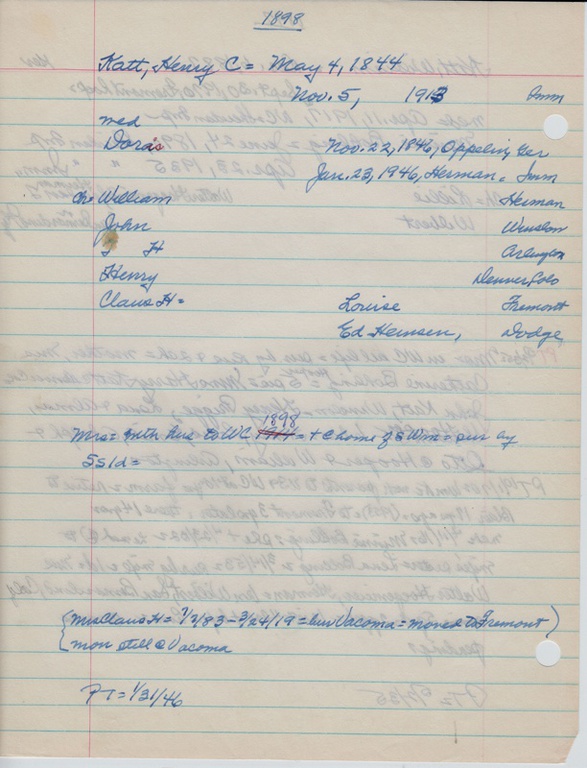 1898
Katt, Henry C = May 4, 1844
Nov. 5, 1913 Imm
med
Dora's Nov. 22, 1846, Oppelin, Ger
Jan. 23, 1946, Herman = Imm
Ch = William Herman
John Winslow
J H Arlington
Henry Denver, Colo
Claus H = Louise Fremont
Ed Heinsen, Dodge,
1898
Mrs = with hus to WC 1914 = + @ home of s Wm = sur by
5s 1d =
(Mrs Claus H = 7/7/83 - 3/24/19 = bur Vacoma = moved to Fremont)
mon still @ Vacoma
PT = 1/31/46